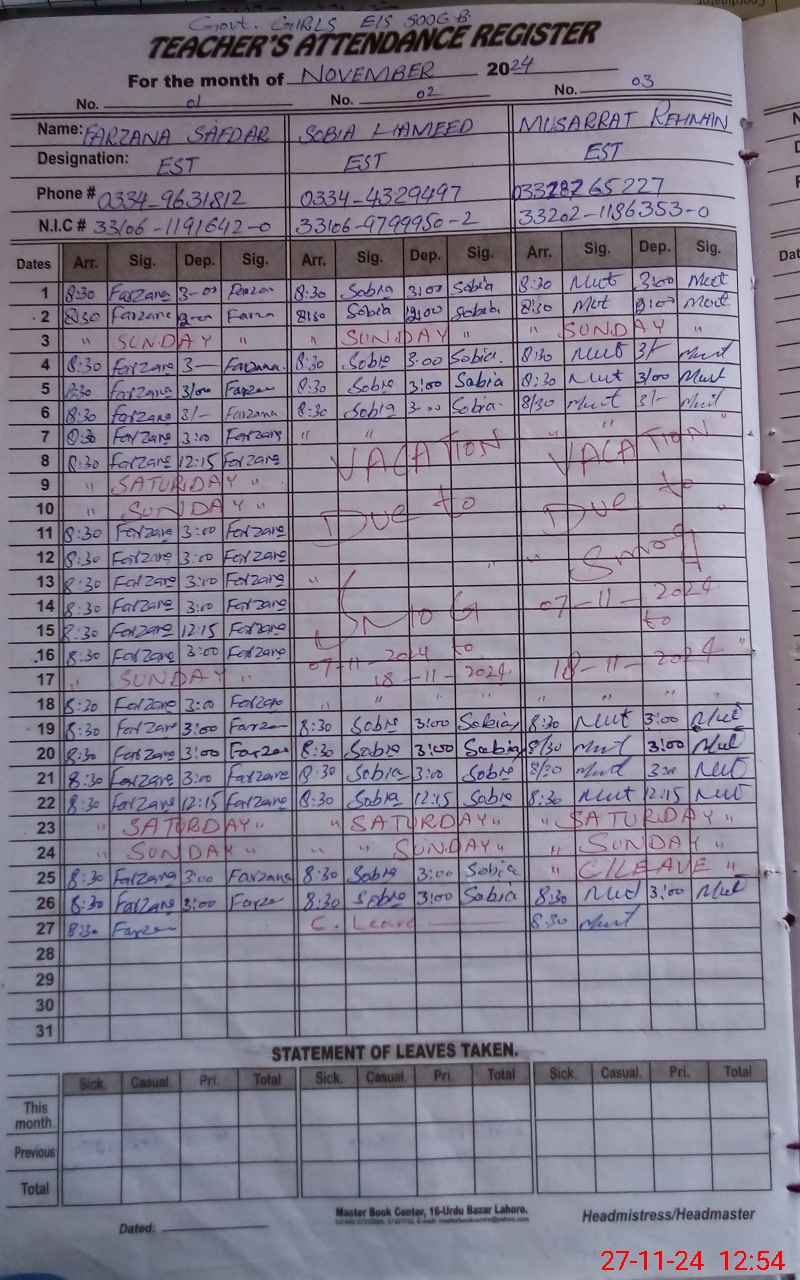 Govt. GIRLS E/S 500GB
TEACHER'S ATTENDANCE REGISTER
For the month of NOVEMBER 2024
No. 01 No. 02 No. 03
Name: FARZANA SAFDAR SOBIA HAMEED MUSARRAT REHMAN
Designation: EST EST EST
Phone # 0334-9631812 0334-4329497
N.I.C # 33106-1191642-0 33106-9799950-2 33202-1186353-0
Dates Arr. Sig. Dep. Sig. Arr. Sig. Dep. Sig. Arr. Sig. Dep. Sig.
1 8:30 Farzana 3-00 Farzan 8:30 Sobia 3:00 Sobia 8:30 Mut 3:00 Mut
2 8:30 Farzana Farza 8:30 Sobia 12:00 Sobia 8:30 Mut Mut
3 " SUNDAY " " SUNDAY " " SUNDAY "
4 8:30 Farzana 3— Farzana 8:30 Sobia 3:00 Sobia. 8:30 Mut 3/- Mut
5 8:30 Farzana 3/00 Farzan 8:30 Sobia 3:00 Sobia 8:30 Mut 3/00 Mut
6 8:30 Farzana 3/- Farzana 8:30 Sobia 3:00 Sobia 8/30 Mut 3/- Mut
7 8:30 Farzana 3:00 Farzana " " " "
8 8:30 Farzana 12:15 Farzana VACATION VACATION
9 " SATURDAY "
10 " SUNDAY " Due to Due to
11 8:30 Farzana 3:00 Farzana
12 8:30 Farzana 3:00 Farzana " Smog
13 8:30 Farzana 3:00 Farzana "
14 8:30 Farzana 3:00 Farzana SMOG 07-11-2024
15 8:30 Farzana 12:15 Farzana to
16 8:30 Farzana 3:00 Farzana 07-11-2024 to 18-11-2024 "
17 " SUNDAY " 18-11-2024
18 8:30 Farzana 3:00 Farzana " " " " " " "
19 8:30 Farzana 3:00 Farzan 8:30 Sobia 3:00 Sobia 8:30 Mut 3:00 Mut
20 8:30 Farzana 3:00 Farzan 8:30 Sobia 3:00 Sobia 8/30 Mut 3:00 Mut
21 8:30 Farzana 3:00 Farzana 8:30 Sobia 3:00 Sobia 8/30 Mut 3:00 Mut
22 8:30 Farzana 12:15 Farzana 8:30 Sobia 12:15 Sobia 8:30 Mut 12:15 Mut
23 " SATURDAY " " SATURDAY " " SATURDAY "
24 " SUNDAY " " " SUNDAY " " SUNDAY "
25 8:30 Farzana 3:00 Farzana 8:30 Sobia 3:00 Sobia " C/LEAVE "
26 8:30 Farzana 3:00 Farzan 8:30 Sobia 3:00 Sobia 8:30 Mut 3:00 Mut
27 8:30 Farzan C. Leave 8:30 Mut
28
29
30
31
STATEMENT OF LEAVES TAKEN.
Sick. Casual. Pri. Total Sick. Casual. Pri. Total Sick. Casual. Pri. Total
This month
Previous
Total
Master Book Center, 16-Urdu Bazar Lahore.
Dated: Headmistress/Headmaster
27-11-24 12:54